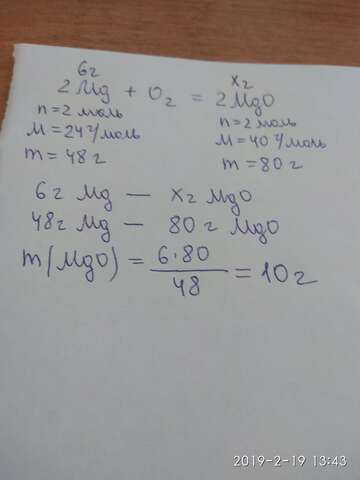 6г                    xг
2Mg + O₂ = 2MgO
n = 2 моль          n = 2 моль
M = 24 г/моль    M = 40 г/моль
m = 48 г             m = 80 г
6г Mg — xг MgO
48г Mg — 80 г MgO
m(MgO) = 6·80/48 = 10г
2019-2-19 13:43